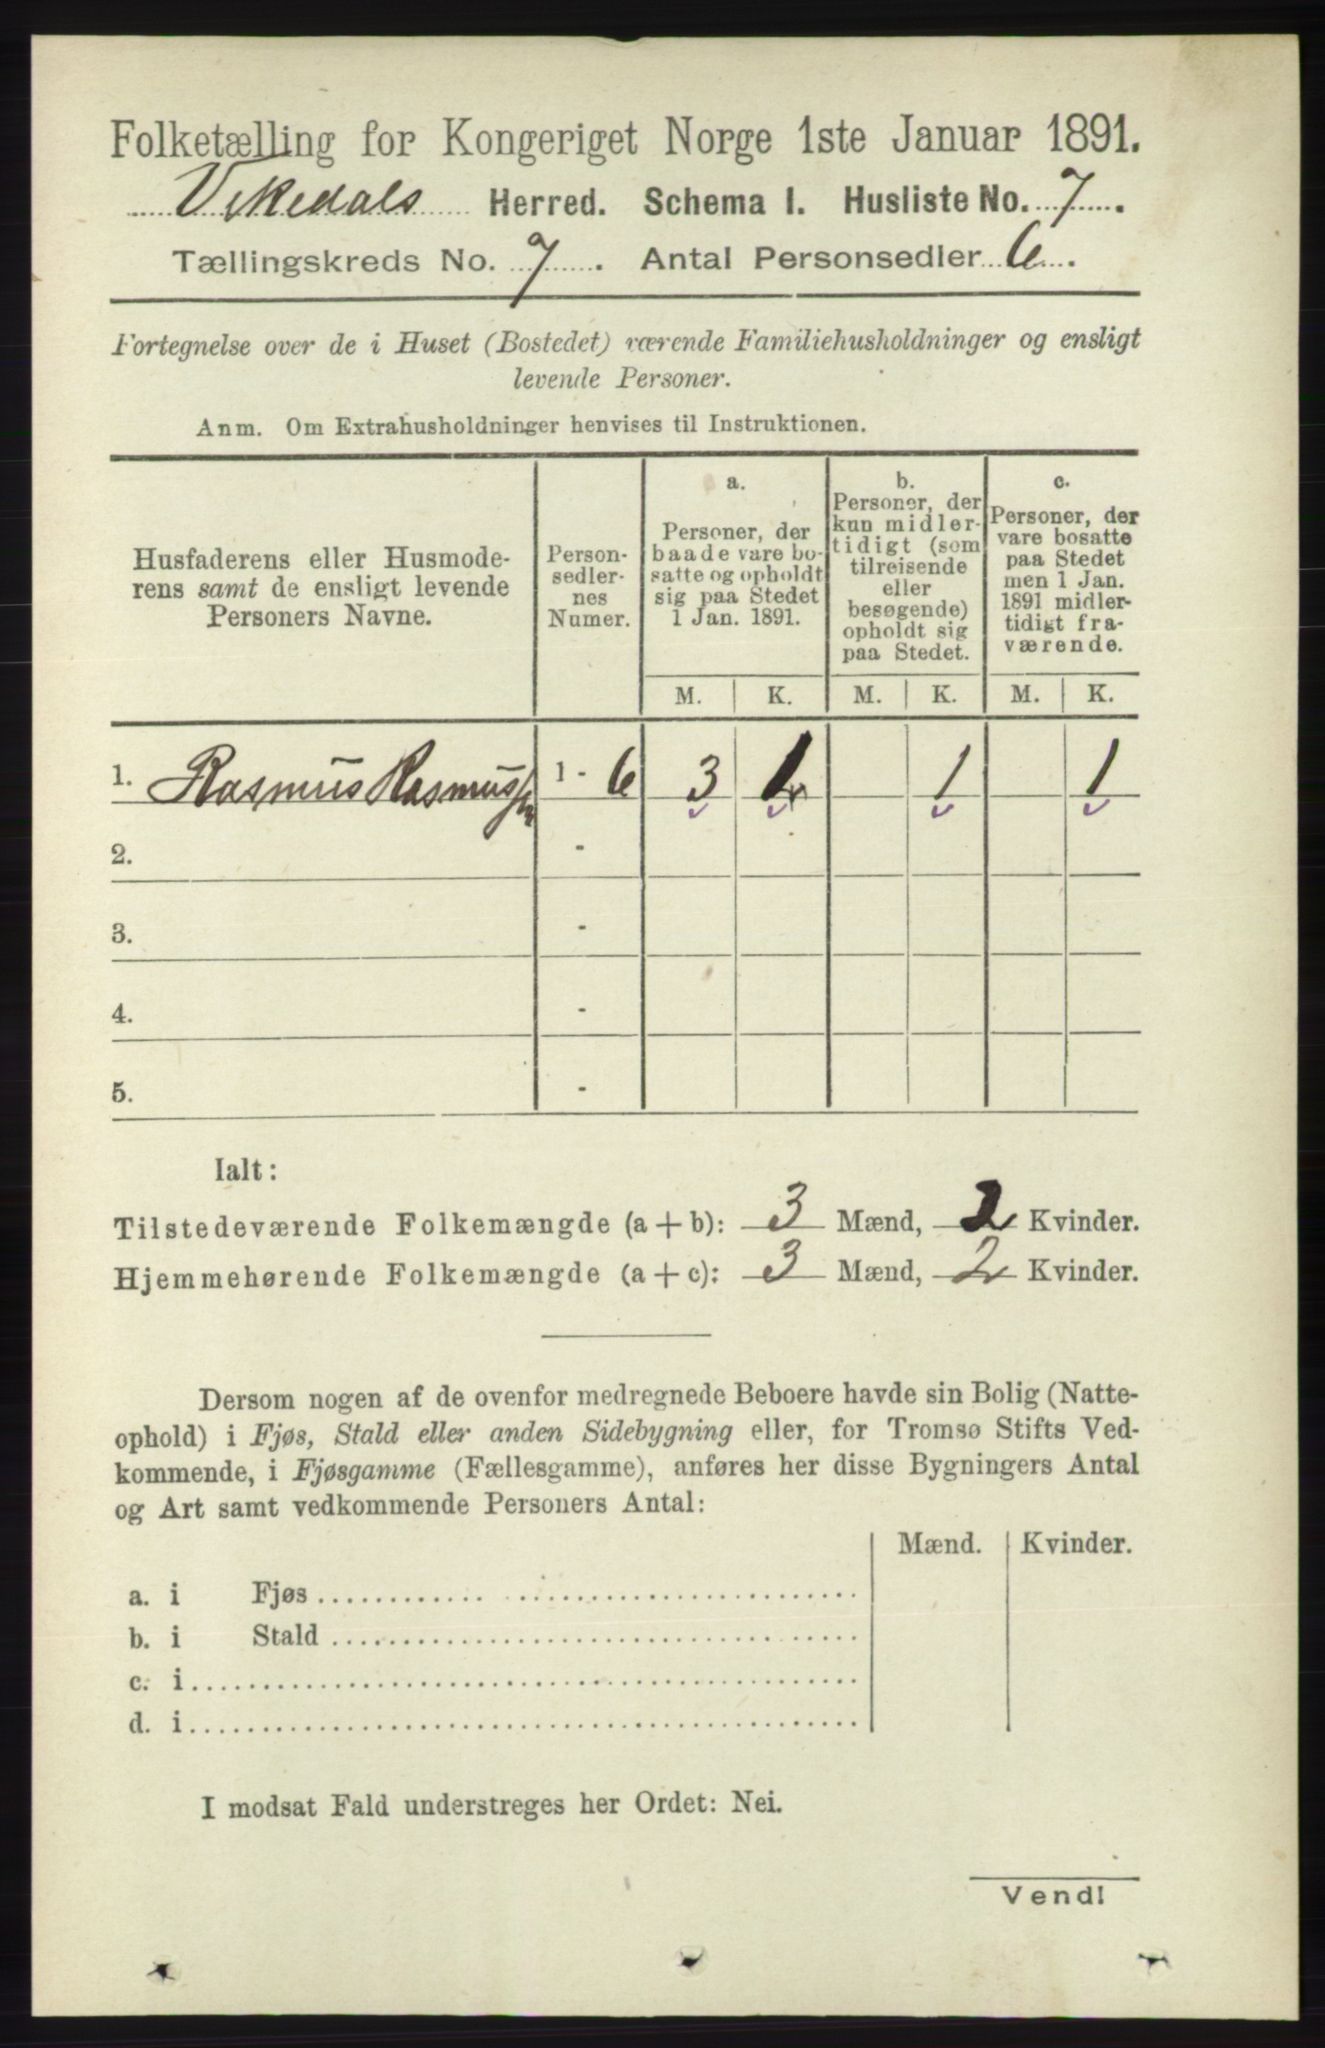 Folketælling for Kongeriget Norge 1ste Januar 1891.
Vikedals Herred. Schema I. Husliste No. 7.
Tællingskreds No. 7. Antal Personsedler 6.
Fortegnelse over de i Huset (Bostedet) værende Familiehusholdninger og ensligt
levende Personer.
Anm. Om Extrahusholdninger henvises til Instruktionen.
Husfaderens eller Husmode-
rens samt de ensligt levende
Personers Navne.
Person-
sedler-
nes
Numer.
a.
Personer, der
baade vare bo-
satte og opholdt
sig paa Stedet
1 Jan. 1891.
b.
Personer, der
kun midler-
tidigt (som
tilreisende
eller
besøgende)
opholdt sig
paa Stedet.
c.
Personer, der
vare bosatte
paa Stedet
men 1 Jan.
1891 midler-
tidigt fra-
værende.
M. K. M. K. M. K.
1. Rasmus Rasmussen 1 - 6 3 1 1 1
2. -
3. -
4. -
5. -
Ialt:
Tilstedeværende Folkemængde (a + b): 3 Mænd, 2 Kvinder.
Hjemmehørende Folkemængde (a + c): 3 Mænd, 2 Kvinder.
Dersom nogen af de ovenfor medregnede Beboere havde sin Bolig (Natte-
ophold) i Fjøs, Stald eller anden Sidebygning eller, for Tromsø Stifts Ved-
kommende, i Fjøsgamme (Fællesgamme), anføres her disse Bygningers Antal
og Art samt vedkommende Personers Antal:
Mænd. Kvinder.
a. i Fjøs
b. i Stald
c. i
d. i
I modsat Fald understreges her Ordet: Nei.
Vend!